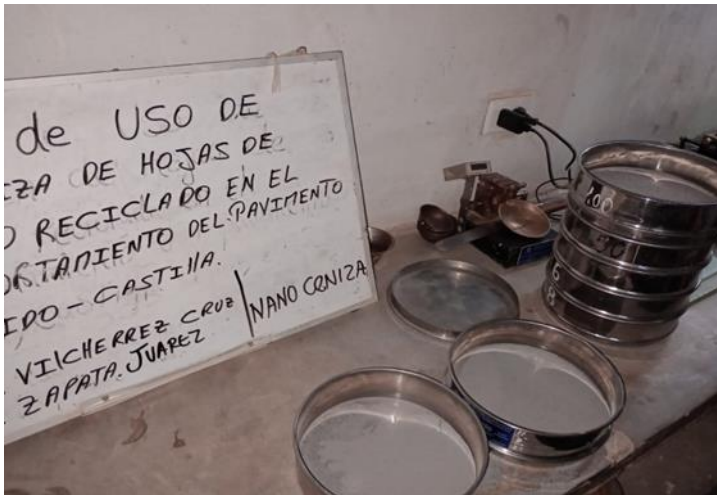 de USO DE
IZA DE HOJAS DE
O RECICLADO EN EL
ORTAMIENTO DEL PAVIMENTO
IDO - CASTILLA.
VILCHERREZ CRUZ
ZAPATA. JUAREZ
NANO CENIZA
200